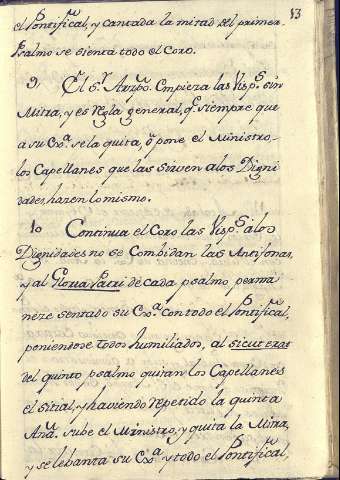 53
el Pontifical, y cantada la mitad del primer
Psalmo se sienta todo el Coro.
9) El Sr. Arzpo. Empieza las Visps. sin
Mitra, y es regla general, q.e siempre que
a su Exa. se la quita, ó pone el Ministro,
los Capellanes que las sirven a los Digni
dades, hazen lo mismo.
10 Continua el Coro las Visps. a los
Dignidades no se Combidan las Antifonas,
y al Gloria Patri de cada psalmo perma
nece sentado su Exa. con todo el Pontifical,
poniendose todos humillados, al sicut erat
del quinto psalmo quitan los Capellanes
el sitial, y haviendo repetido la quinta
Ana. sube el Ministro, y quita la Mitra,
y se lebanta su Exa. y todo el Pontifical,